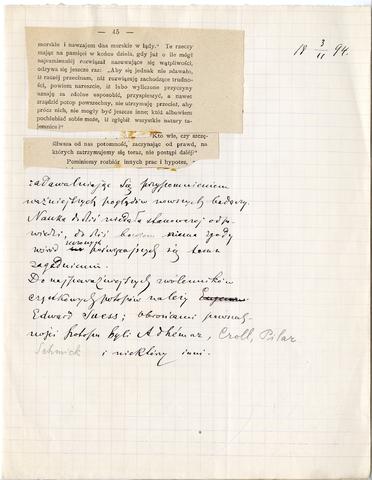 — 45 —
18 3/II 94.
morskie i nawzajem dna morskie w lądy." Te rzeczy
mając na pamięci w końcu dzieła, gdy już o ile mógł
najsumienniej rozwiązał nasuwające się wątpliwości,
odzywa się jeszcze raz: „Aby się jednak nie zdawało,
iż raczej przecinam, niż rozwiązuję zachodzące trudno-
ści, powiem nareszcie, iż lubo wyliczone przyczyny
uznaję za zdolne usposobić, przyspieszyć, a nawet
zrządzić potop powszechny, nie utrzymuję przecież, aby
prócz nich, nie mogły być jeszcze inne; któż albowiem
pochlebiać sobie może, iż zgłębił wszystkie natury ta-
jemnice!"
"Kto wie, czy szczę-
śliwsza od nas potomność, zaczynając od prawd, na
których zatrzymujemy się teraz, nie postąpi dalej?"
Pominiemy rozbiór innych prac i hypotez,
zadawalniając się przypomnieniem
ważniejszych poglądów nowszych badaczy.
Nauka do dziś nie dała stanowczej odpo-
wiedzi, do dziś bowiem niema zgody
wśród uczonych poświęcających się temu
zagadnieniu.
Do najpoważniejszych zwolenników
cząstkowych potopów należy
Edward Suess; obrońcami powszech-
ności potopu byli Adhémar, Croll, Pilar
Schmick i niektórzy inni.